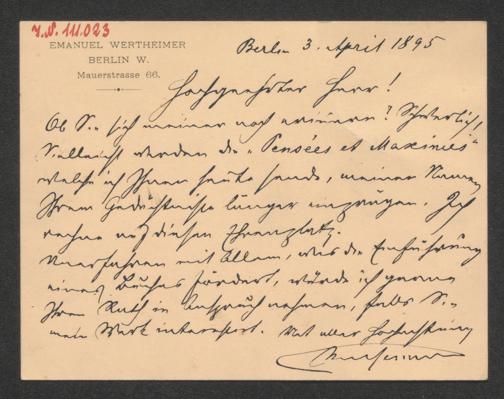 I.N. 111.023
EMANUEL WERTHEIMER
BERLIN W.
Mauerstrasse 66.
Berlin 3. April 1895
Hochgeehrter Herr!
Ob Sie sich meiner noch erinnern? Schwerlich,
vielleicht werden die „Pensées et Maximes“
welche ich Ihnen heute sende, meinen Namen
Ihrem Gedächtnisse länger einprägen. Ich
rechne auf diesen Ehrenplatz.
Unerfahren mit Allem, was die Einführung
eines Buches fördert, würde ich gerne
Ihren Rath in Anspruch nehmen, falls Sie
mein Werk interessirt. Mit aller Hochachtung
Wertheimer